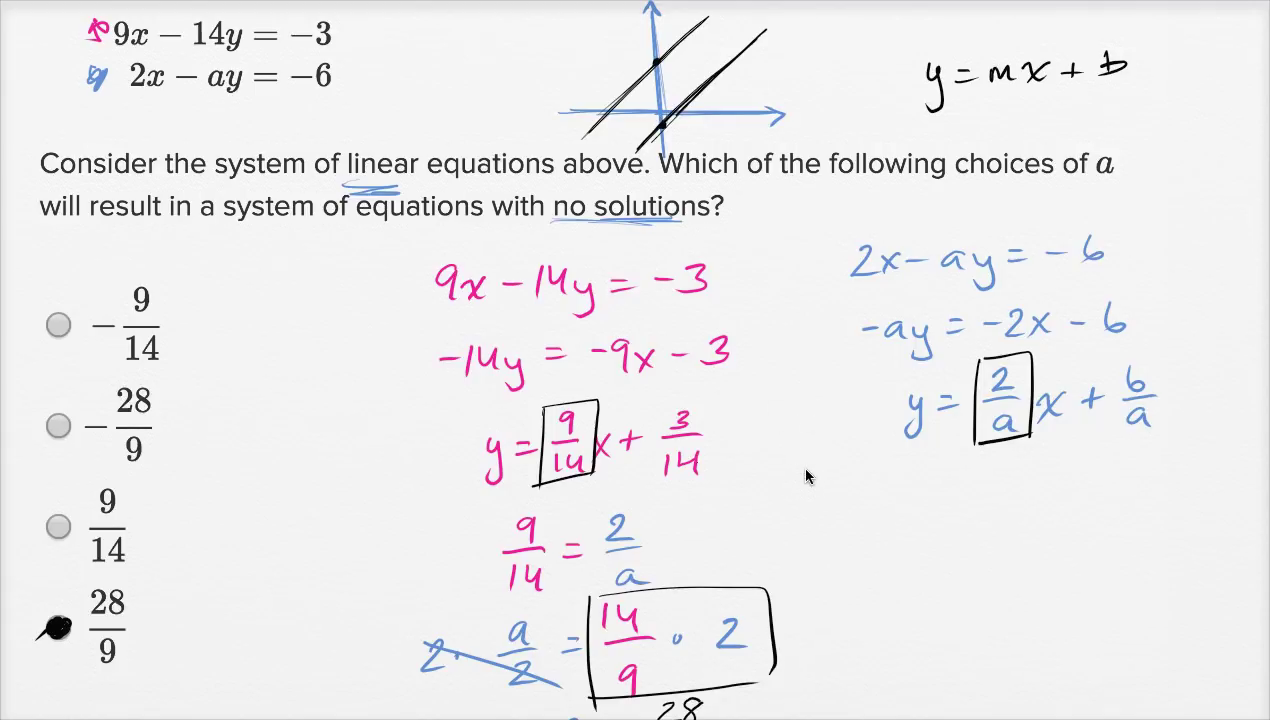 9x − 14y = −3
2x − ay = −6
y = mx + b
Consider the system of linear equations above. Which of the following choices of a
will result in a system of equations with no solutions?
− 9/14
− 28/9
9/14
28/9
9x − 14y = −3
−14y = −9x − 3
y = 9/14 x + 3/14
9/14 = 2/a
2 · a/2 = 14/9 · 2
28
2x − ay = −6
−ay = −2x − 6
y = 2/a x + 6/a